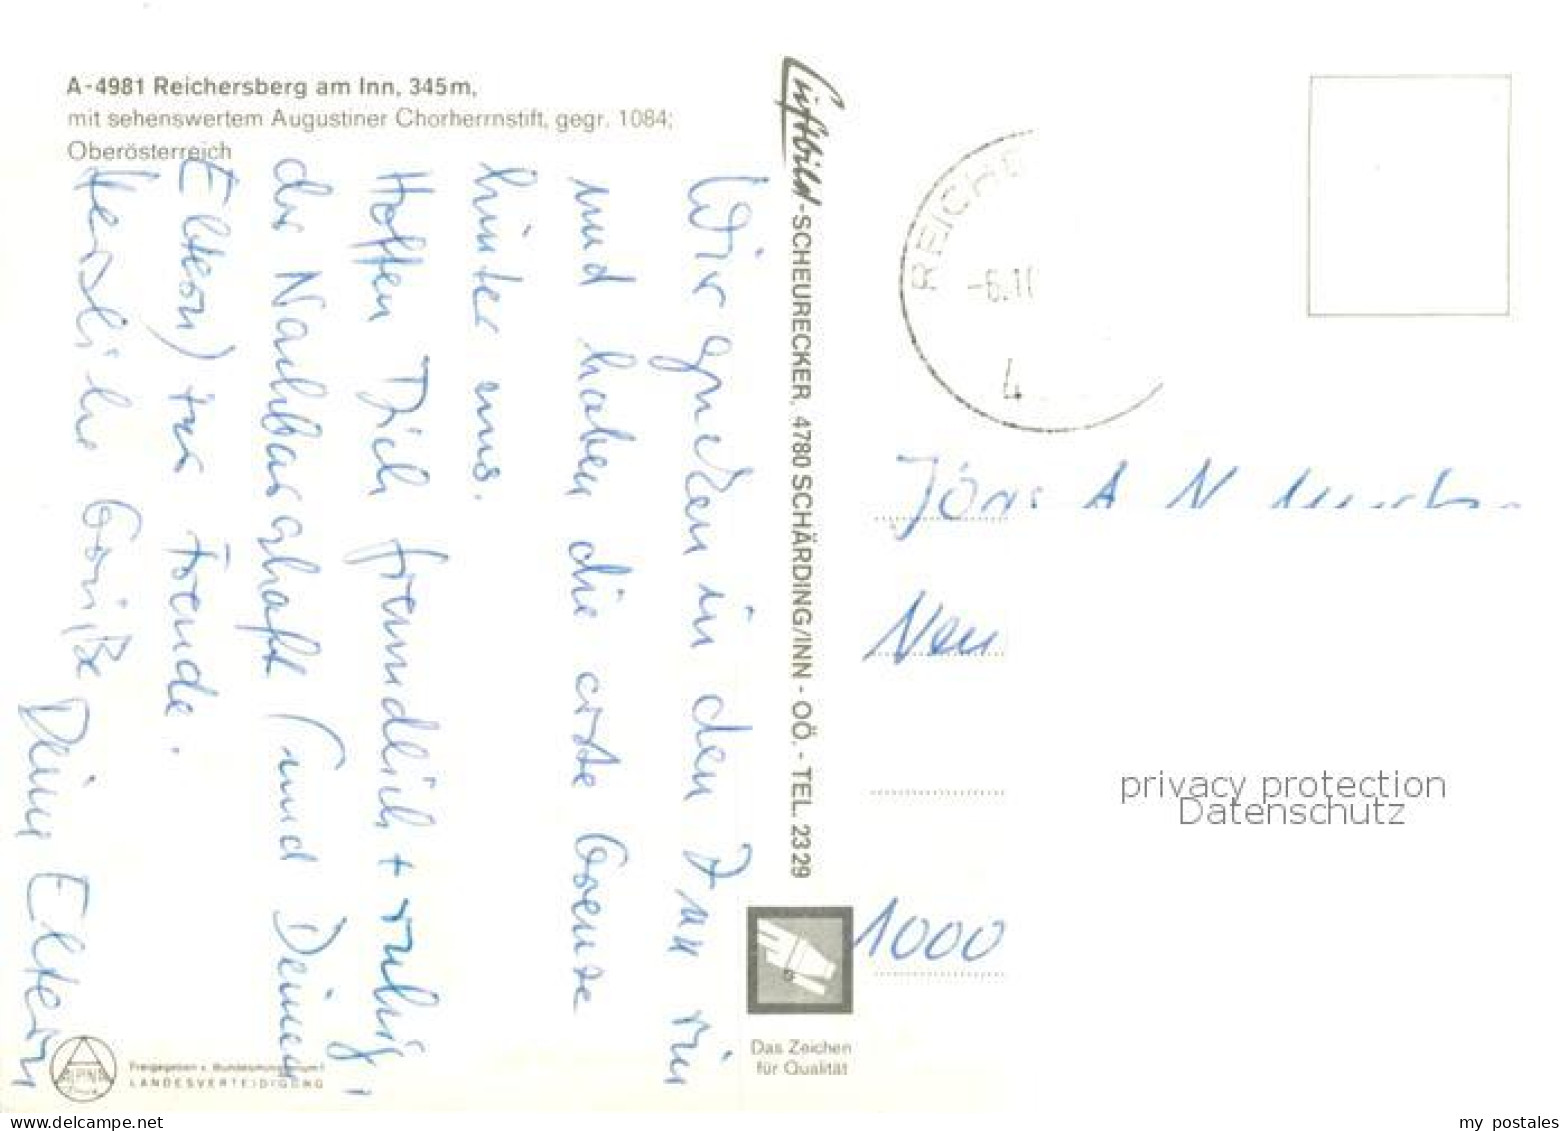 A-4981 Reichersberg am Inn, 345m,
mit sehenswertem Augustiner Chorherrnstift, gegr. 1084;
Oberösterreich
Wir gucken in den Inn rin
und haben die erste Grenze
hinter uns.
Hoffen Dich freundlich + ruhig,
der Nachbarschaft (und Deinen
Eltern) zur Freude.
Herzliche Grüße
Deine Eltern
Luftbild-SCHEURECKER, 4780 SCHÄRDING/INN - OÖ. - TEL. 2329
REICHE
-6.10
4
Jörg
Neu
1000
privacy protection
Datenschutz
Das Zeichen
für Qualität
ALPINA
Freigegeben v. Bundesministerium f.
LANDESVERTEIDIGUNG
my postales